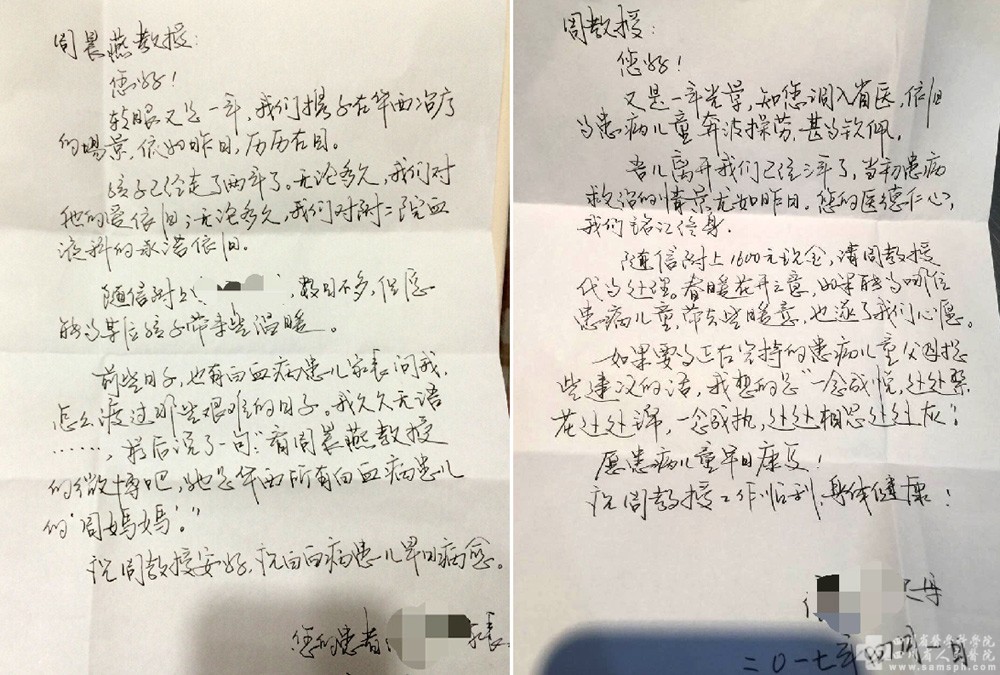 周晨燕教授:
您好!
转眼又是一年,我们携子在华西治疗
的场景,依如昨日,历历在目。
孩子已经走了两年了。无论多久,我们对
他的爱依旧;无论多久,我们对附二院血
液科的承诺依旧。
随信附上,数目不多,但愿
能为某位孩子带来些温暖。
前些日子,也有白血病患儿家长问我,
怎么渡过那些艰难的日子。我久久无语
……,最后说了一句:“看周晨燕教授
的微博吧,她是华西所有白血病患儿
的‘周妈妈’。”
祝周教授安好,祝白血病患儿早日病愈。
您的患者:家长
周教授:
您好!
又是一年光景,知您调入省医,依旧
为患病儿童奔波操劳,甚为钦佩。
吾儿离开我们已经三年了,当初患病
救治的情景尤如昨日。您的医德仁心,
我们铭记终身。
随信附上1600元现金,请周教授
代为处理。春暖花开之意,如果能为哪位
患病儿童,带去些暖意,也遂了我们心愿。
如果要为正在坚持的患病儿童父母提
些建议的话,我想的是“一念成悦,处处繁
花处处锦,一念成执,处处相思处处灰”!
愿患病儿童早日康复!
祝周教授工作顺利,身体健康!
二〇一七年四月一日
四川省医学科学院
四川省人民医院
www.samsph.com